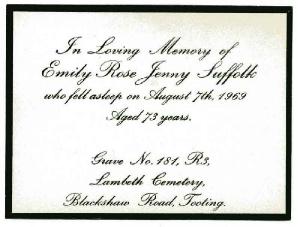 In Loving Memory of
Emily Rose Jenny Suffolk
who fell asleep on August 7th, 1969
Aged 73 years.
Grave No. 181, R3,
Lambeth Cemetery,
Blackshaw Road, Tooting.